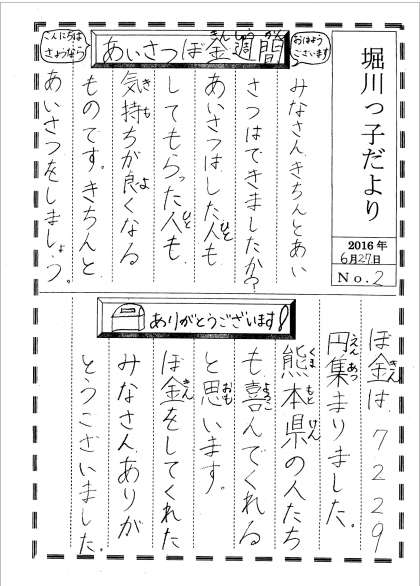 堀川っ子だより
2016年
6月27日
No.2
おはよう
ございます
あいさつぼ金週間
きん しゅう かん
こんにちは
さようなら
みなさんきちんとあい
さつはできましたか?
あいさつはした人も
ひと
してもらった人も
ひと
気持ちが良くなる
き も よ
ものです。きちんと
あいさつをしましょう。
ありがとうございます!
ぼ金は、7229
きん
円集まりました。
えん あつ
熊本県の人たち
くま もと けん
も喜んでくれる
よろこ
と思います。
おも
ぼ金をしてくれた
きん
みなさんありが
とうございました。